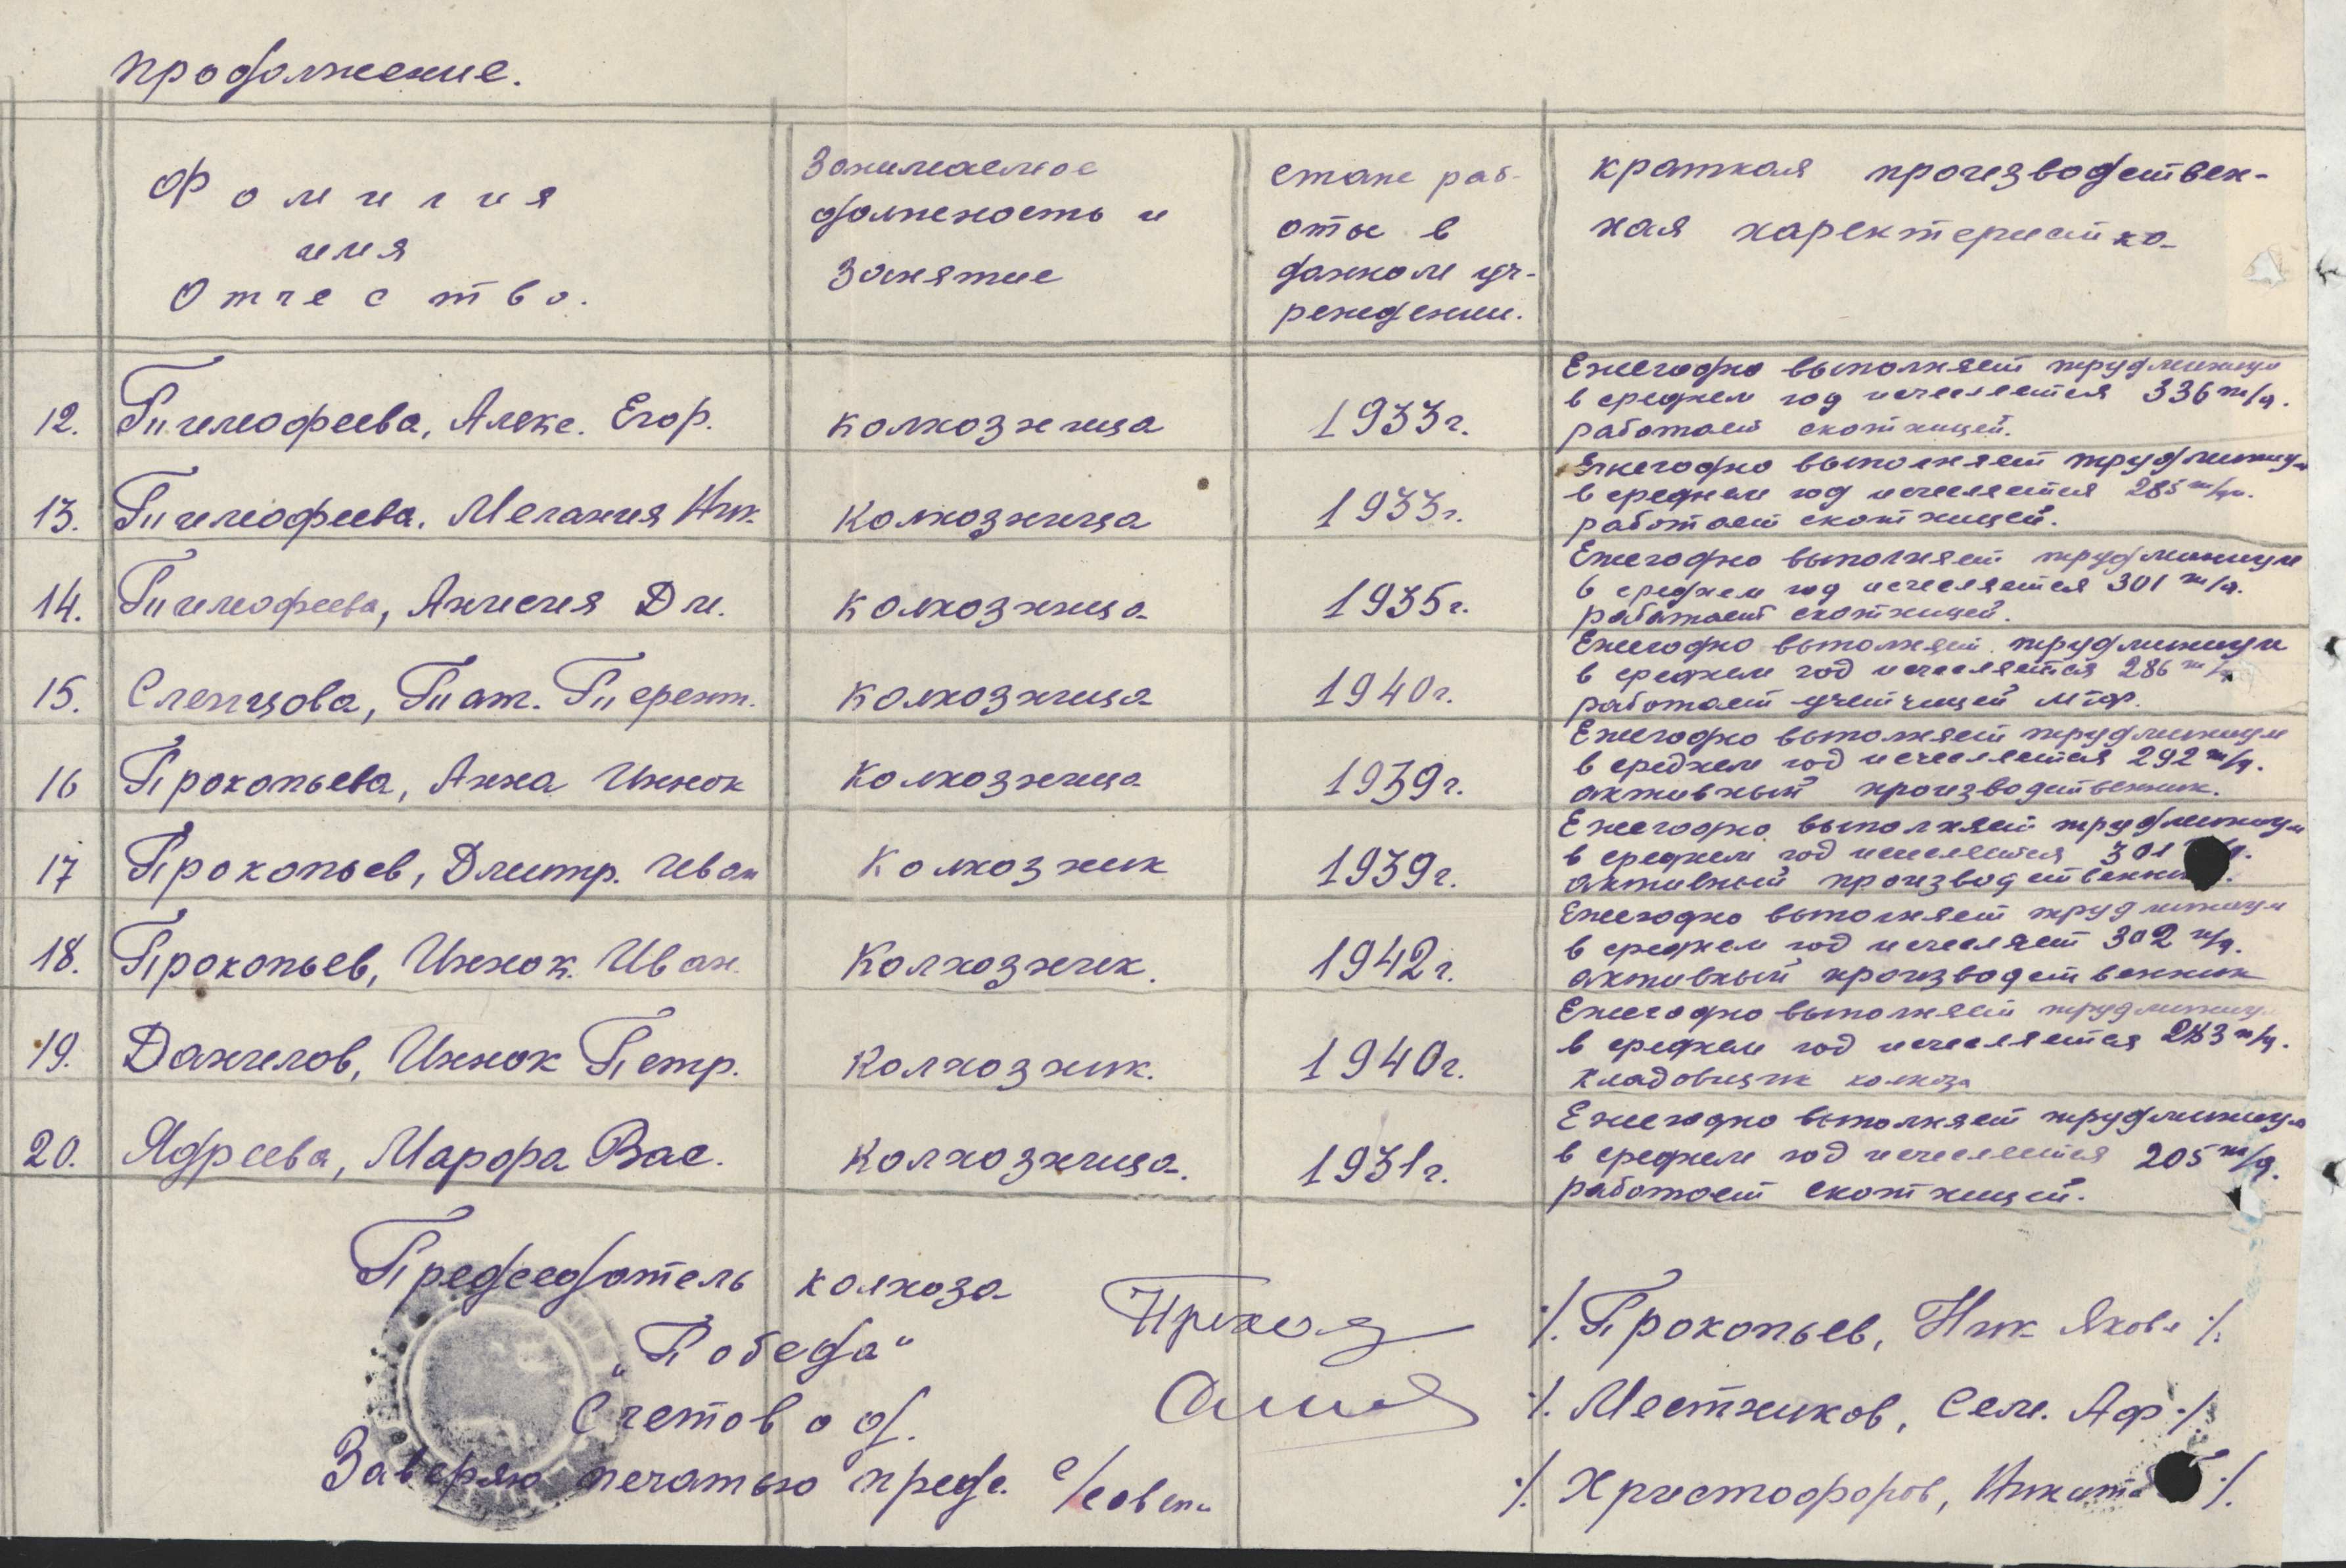 продолжение.
Фамилия
имя
Отчество.
Занимаемое
должность и
Занятие
стаже раб-
оты в
данном уч-
реждении.
краткая производствен-
ная характеристика
12. Тимофеева, Алекс. Егор. колхозница 1933г. Ежегодно выполняет трудминимум
в среднем год исчисляется 336 т/д.
работает скотницей.
13. Тимофеева, Мелания Ник. Колхозница 1933г. Ежегодно выполняет трудминимум
в среднем год исчисляется 285 т/д.
работает скотницей.
14. Тимофеева, Анисия Дм. колхозница 1935г. Ежегодно выполняет трудминимум
в среднем год исчисляется 301 т/д.
работает скотницей.
15. Слепцова, Тат. Терент. колхозница 1940г. Ежегодно выполняет трудминимум
в среднем год исчисляется 286 т/д.
работает учетчицей МТФ.
16 Прокопьева, Анна Иннок Колхозница 1939г. Ежегодно выполняет трудминимум
в среднем год исчисляется 292 т/д.
активный производственник.
17 Прокопьев, Дмитр. Иван Колхозник 1939г. Ежегодно выполняет трудминимум
в среднем год исчисляется 301
активный
18. Прокопьев, Иннок. Иван. Колхозник. 1942г. Ежегодно выполняет трудминимум
в среднем год исчисляет 302 т/д.
активный производственник
19. Данилов, Иннок Петр. Колхозник. 1940г. Ежегодно выполняет трудминимум
в среднем год исчисляется т/д.
кладовщик колхоза
20. Ядреева, Марфа Вас. Колхозница. 1931г. Ежегодно выполняет трудминимум
в среднем год исчисляется 205 т/д.
работает скотницей.
Председатель колхоза
„Победа“ ./. Прокопьев, Ник Яковл ./.
Счетовод. ./. Местников, Сем. Аф ./.
Заверяю печатью пред. с/совета ./. Христофоров, Никита ./.